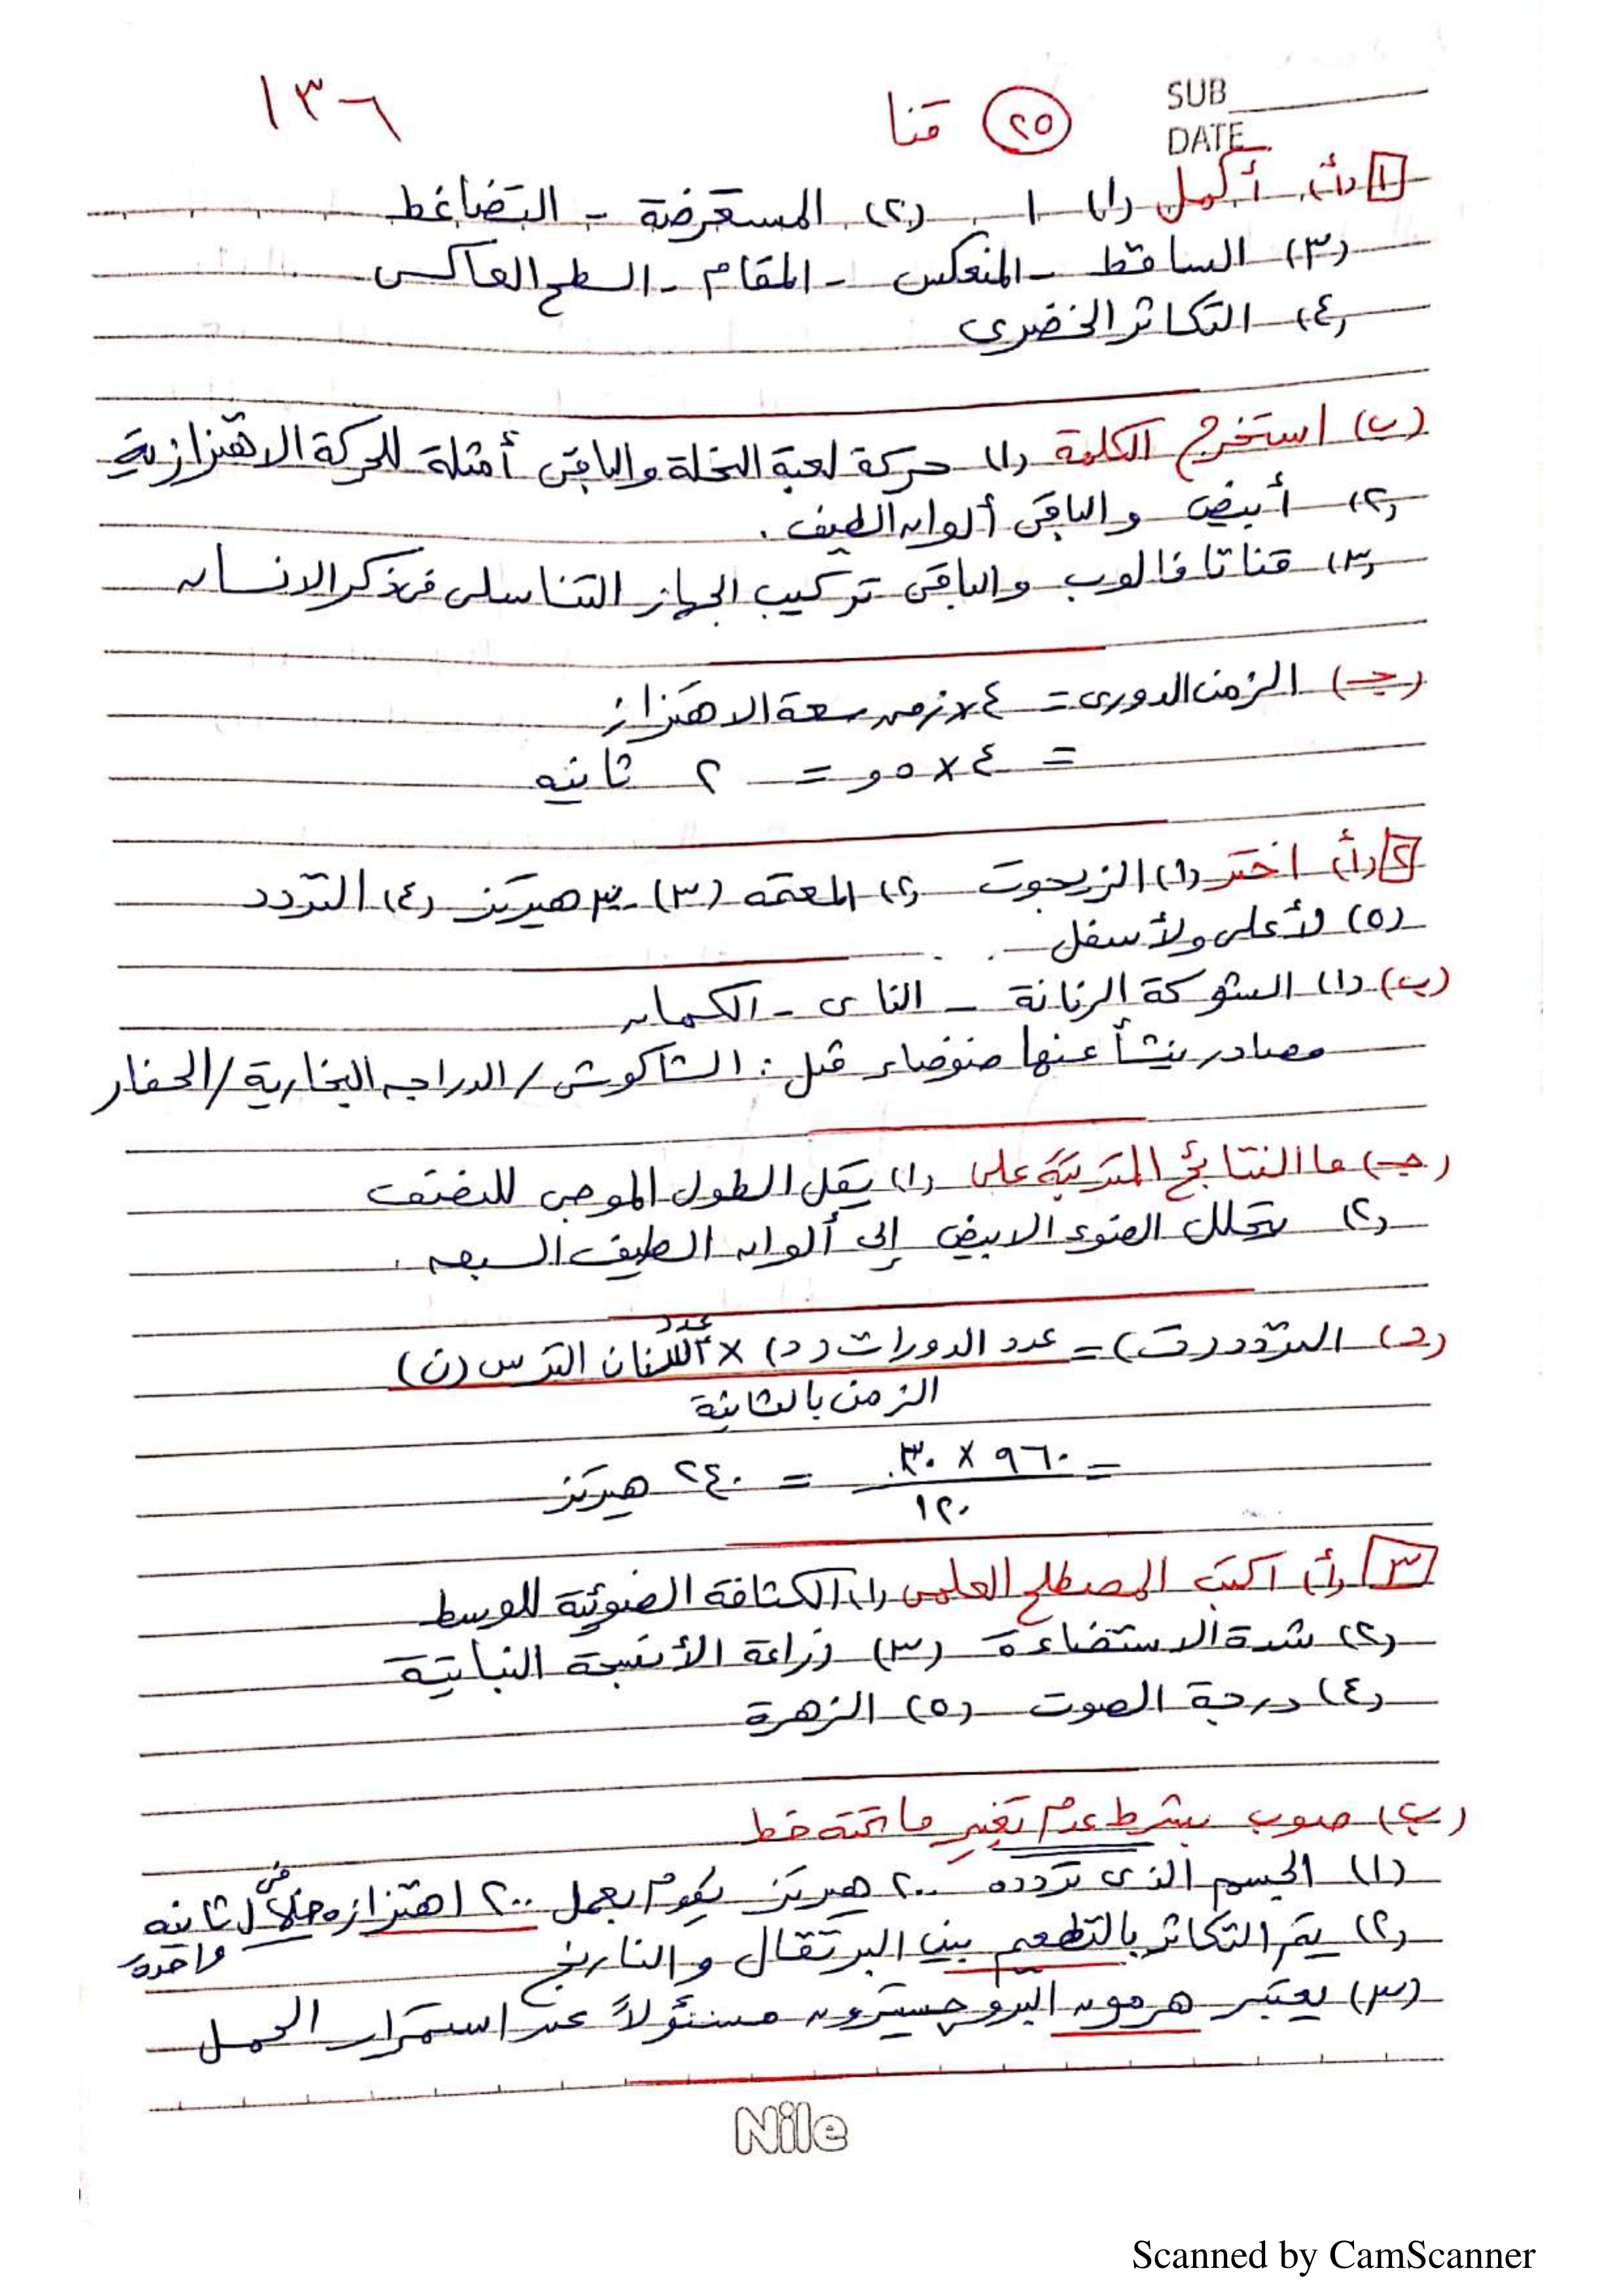 SUB
١٣٦ (٢٥) قنا
DATE
[١] (أ) أكمل (١) ١ (٢) المستعرضة - التضاغط
(٣) الساقط - المنعكس - المقام - السطح العاكس
(٤) التكاثر الخضرى
(ب) استخرج الكلمة (١) حركة لعبة النحلة والباقى أمثلة للحركة الاهتزازية
(٢) أبيض والباقى ألوان الطيف .
(٣) قناتا فالوب والباقى تركيب الجهاز التناسلى فى ذكر الانسان
(جـ) الزمن الدورى = ٤ × زمن سعة الاهتزاز
= ٤ × ٥و = ٢ ثانيه
[٢] (أ) اختر (١) الزيجوت (٢) المعتمه (٣) ٣٠ هيرتز (٤) التردد
(٥) لأعلى ولأسفل
(ب) (١) الشوكة الرنانة - الناى - الكمان
مصادر ينشأ عنها ضوضاء مثل : الشاكوش / الدراجه البخارية / الحفار
(جـ) ما النتائج المترتبة على (١) يقل الطول الموجى للنصف
(٢) يتحلل الضوء الابيض إلى ألوان الطيف السبعه .
(د) التردد (ت) = عدد الدورات (د) × عدد أسنان الترس (ن)
الزمن بالثانية
= ٩٦٠ × ٣٠ / ١٢٠ = ٢٤٠ هيرتز
[٣] (أ) اكتب المصطلح العلمى (١) الكثافة الضوئية للوسط
(٢) شدة الاستضاءة (٣) زراعة الأنسجة النباتية
(٤) درجة الصوت (٥) الزهرة
(ب) صوب بشرط عدم تغيير ما تحته خط
(١) الجسم الذى تردده ٢٠٠ هيرتز يقوم بعمل ٢٠٠ اهتزازه خلال ثانيه
واحده
(٢) يتم التكاثر بالتطعيم بين البرتقال والنارنج
(٣) يعتبر هرمون البروجسترون مسئولاً عن استمرار الحمل
Nile
Scanned by CamScanner